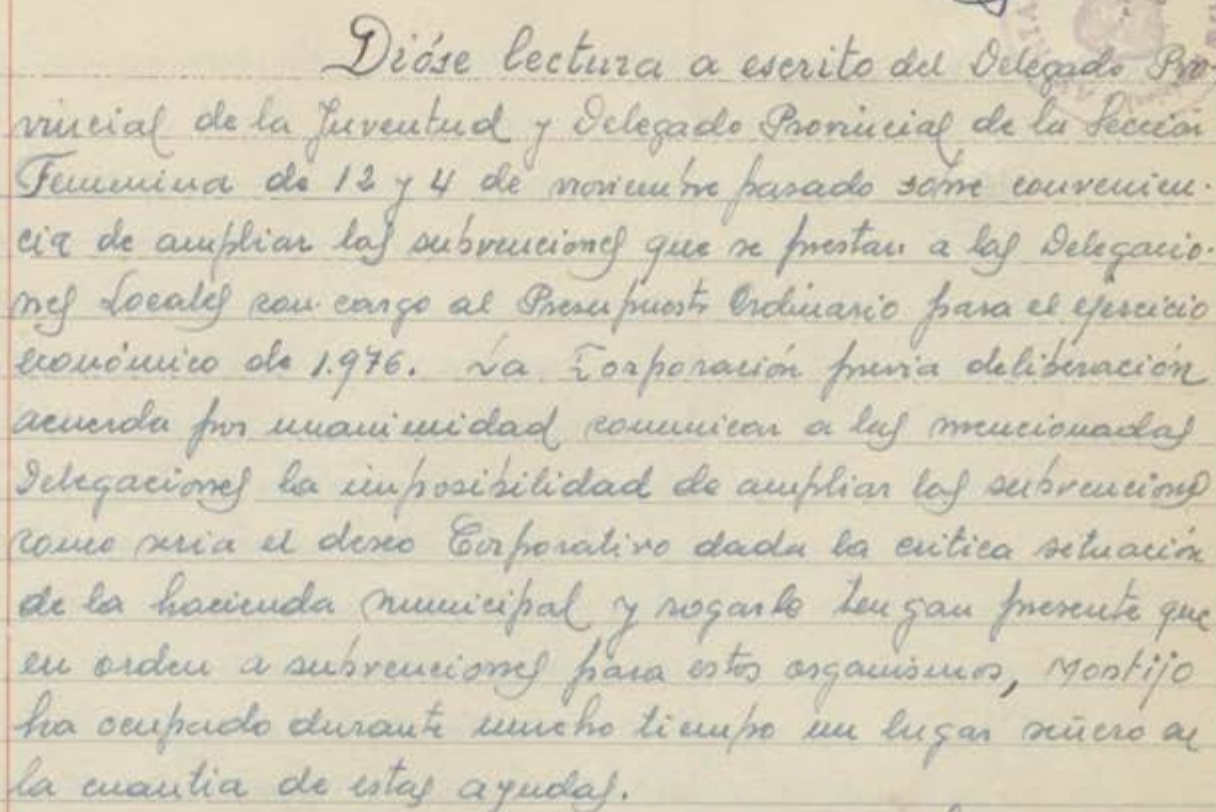 Dióse lectura a escrito del Delegado Pro-
vincial de la Juventud y Delegado Provincial de la Sección
Femenina de 12 y 4 de noviembre pasado sobre convenien-
cia de ampliar las subvenciones que se prestan a las Delegacio-
nes Locales con cargo al Presupuesto Ordinario para el ejercicio
económico de 1.976. La Corporación previa deliberación
acuerda por unanimidad comunicar a las mencionadas
Delegaciones la imposibilidad de ampliar las subvenciones
como seria el deseo Corporativo dada la critica situación
de la hacienda municipal y rogarle tengan presente que
en orden a subvenciones para estos organismos, Montijo
ha ocupado durante mucho tiempo un lugar señero en
la cuantia de estas ayudas.